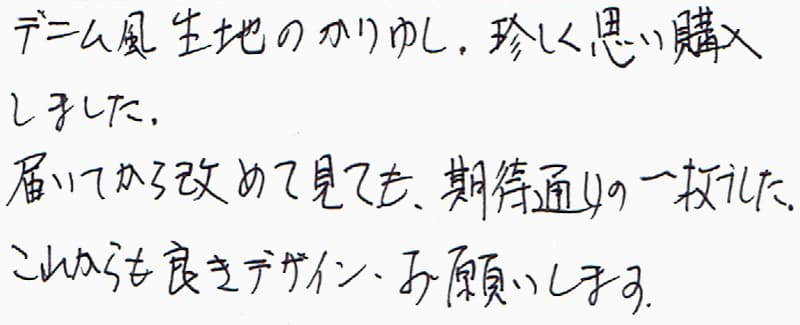 デニム風生地のかりゆし、珍しく思い購入
しました。
届いてから改めて見ても、期待通りの一枚でした。
これからも良きデザイン、お願いします。